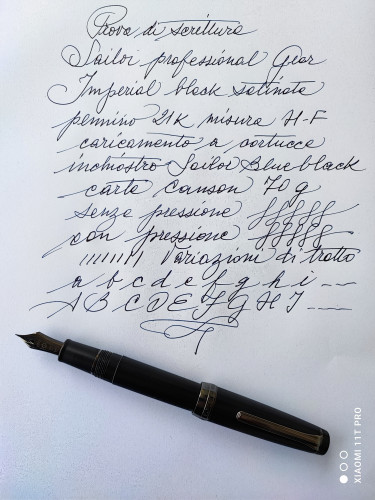 Prova di scrittura
Sailor professional Gear
Imperial black satinata
pennino 21K misura H-F
caricamento a cartucce
inchiostro Sailor Blue black
carta canson 70 g
senza pressione fffffff
con pressione ffffff
//////// Variazioni di tratto
a b c d e f g h i ---
A B C D E F G H I ---
XIAOMI 11T PRO